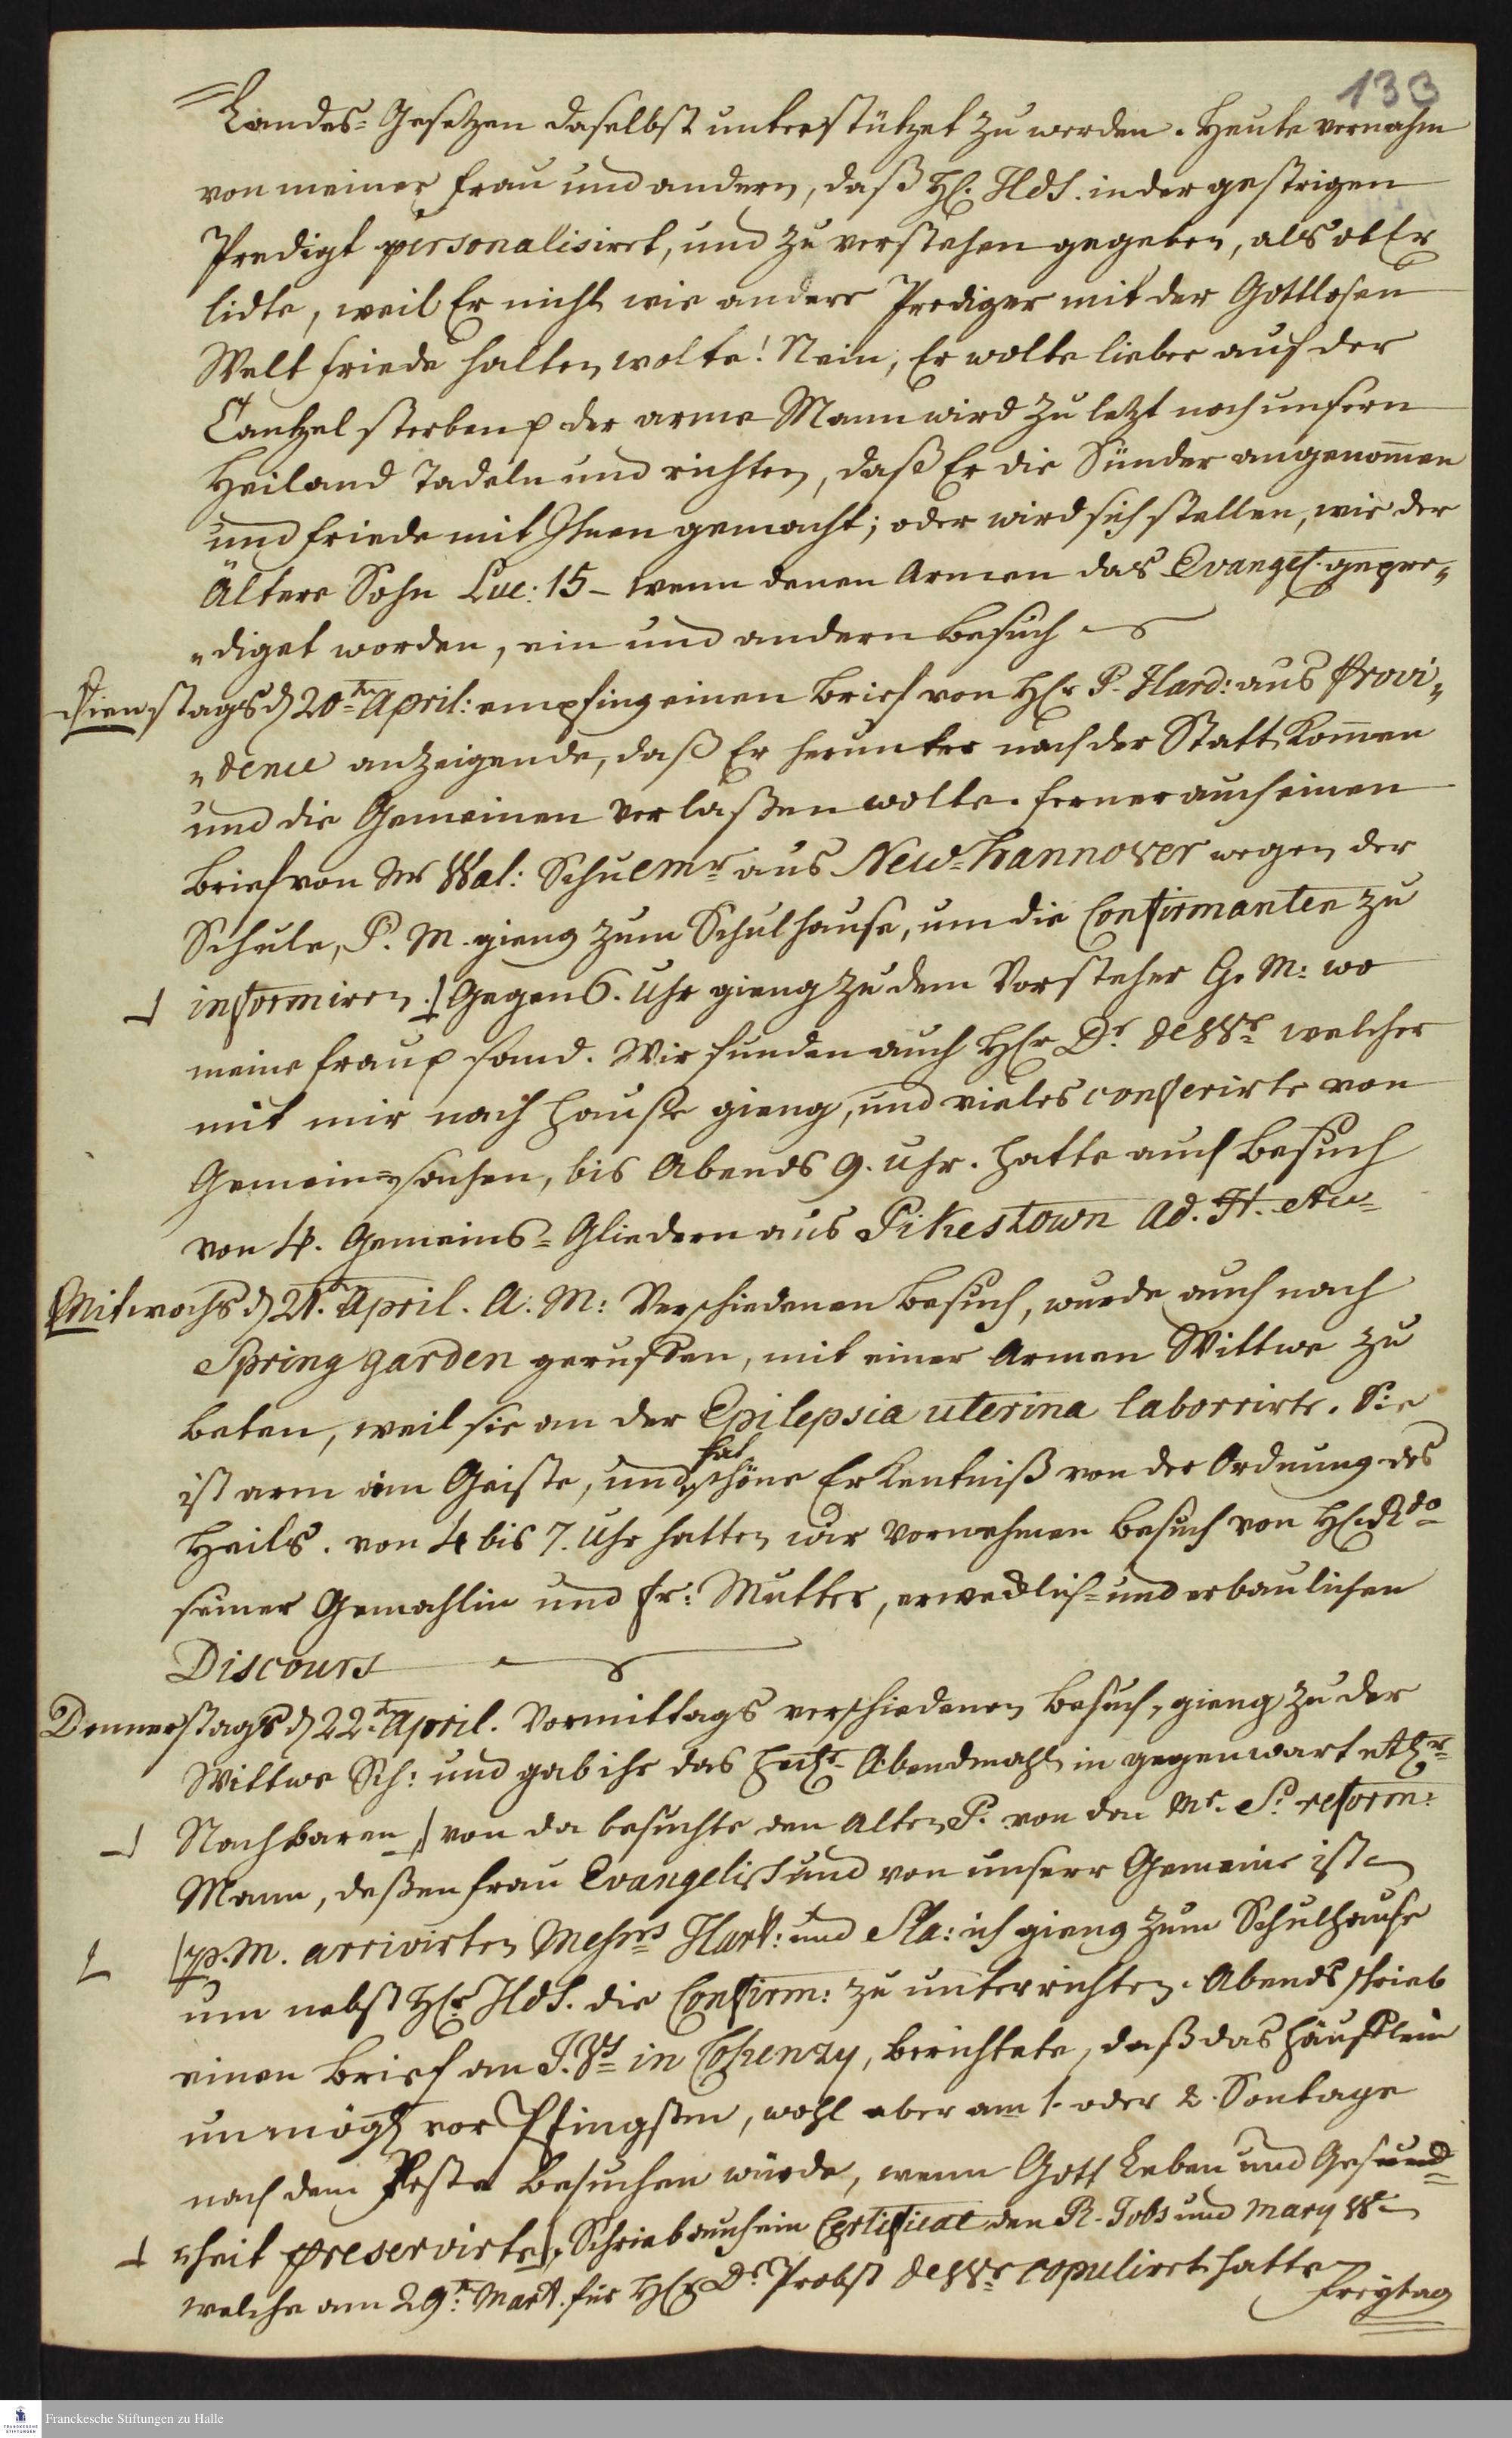 133
Landes-Gesetzen daselbst unterstützet zu werden. Heute vernahm
von meiner Frau und andern, daß H. Hds. in der gestrigen
Predigt personalisiret, und zu verstehen gegeben, als ob Er
lidte, weil Er nicht wie andere Prediger mit der Gottlosen
Welt friede halten wolte! Nein, Er wolte lieber auf der
Cantzel sterben p der arme Mann wird zu letzt noch unsern
Heiland Tadeln und richten, daß Er die Sünder angenom̄en
und friede mit Ihnen gemacht; oder wird sich stellen, wie der
Ältere Sohn Luc: 15 – wenn denen Armen das Evangel. gepre„
„diget worden, ein und andern Besuch
Dienstags d 20tn April: empfing einen Brief von Hr P. Hard: aus Provi„
„dence anzeigende, daß Er herunter nach der Statt kom̄en
und die Gemeinen verlaßen wolte. ferner auch einen
Brief von Mr Wal: Schulmr aus New-Hannover wegen der
Schule, P. M. gieng zum Schulhause, um die Confirmanten zu
informiren. Gegen 6. Uhr gieng zu dem Vorsteher G. M: wo
meine Frau p fand. Wir funden auch Hr Dr de Wr welcher
mit mir nach Hause gieng, und vieles conferirte von
Gemein-sachen, bis Abends 9. Uhr. hatte auch Besuch
von 4. Gemeins-Gliedern aus Pikestown Ad. H. etc
Mitwochs d 21t. April. A. M: Verschiedenen Besuch, wurde auch nach
Spring garden geruffen, mit einer Armen Wittwe zu
beten, weil sie an der Epilepsia uterina laborirte. Sie
ist arm im Geiste, und hat schöne Erkentniß von der Ordnung des
Heils. von 4 bis 7. Uhr hatten wir vornehmen Besuch von H.
seiner Gemahlin und Fr: Mutter, erwecklich- und erbaulichen
Discours
Donnerstags d 22tn April. Vormittags verschiedenen Besuch, gieng zu der
Wittwe Sch: und gab ihr das Abendmahl in gegenwart etlr
Nachbaren, von da besuchte den Alten P. von den Mr. S. reform:
Mann, deßen Frau Evangelisch und von unserer Gemeine ist
p. M. arrivirten Messrs Hart: und Sta: ich gieng zum Schulhause
um nebst Hr Hds. die Confirm: zu unterrichten. Abends schrieb
einen Brief an J. in Cohenzy, berichtete, daß das Häufflein
unmögl vor Pfingsten, wohl aber am 1. oder 2. Sontage
nach dem Feste besuchen würde, wenn Gott Leben und Gesund-
„heit preservirte, Schrieb auch ein Certificat den R. Jobs und Mary W
welche am 29tn Mart. für Hr Dr Probst de Wr copuliret hatte
Freytag
Franckesche Stiftungen zu Halle